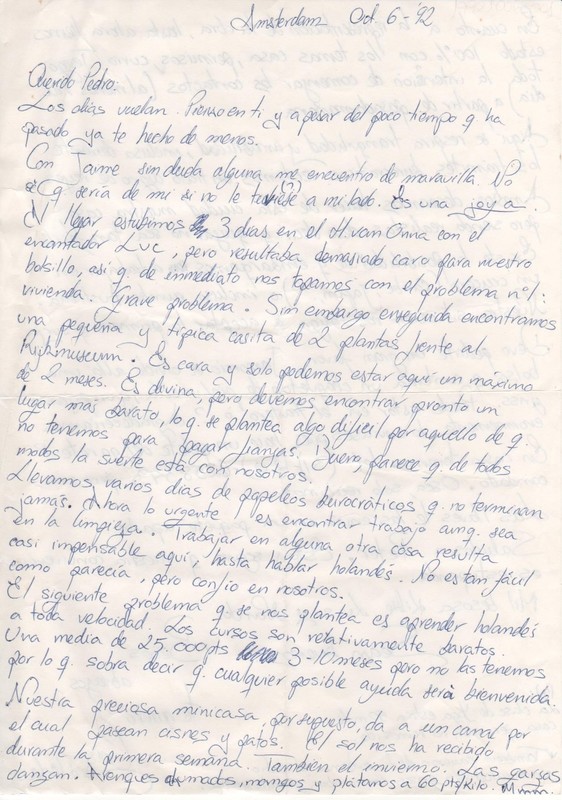 Amsterdam Oct. 6-'92
Querido Pedro:
Los días vuelan. Pienso en ti y a pesar del poco tiempo q ha
pasado ya te hecho de menos.
Con Jaime, sin duda alguna, me encuentro de maravilla. No
se q sería de mi si no le tuviese (?) a mi lado. Es una joya.
Al llegar estubimos 3 días en el H. van Onna con el
encantador Luc, pero resultaba demasiado caro para nuestro
bolsillo, asi q de inmediato nos topamos con el problema nº1:
vivienda. Grave problema. Sin embargo enseguida encontramos
una pequeña y típica casita de 2 plantas frente al
Rijksmuseum. Es cara y solo podemos estar aquí un máximo
de 2 meses. Es divina, pero devemos encontrar pronto un
lugar mas barato, lo q. se plantea algo dificil por aquello de q.
no tenemos para pagar fianzas. Bueno, parece q. de todos
modos la suerte está con nosotros.
Llevamos varios días de papeleos burocráticos q. no terminan
jamás. Ahora lo urgente es encontrar trabajo aunq. sea
en la limpieza. Trabajar en alguna otra cosa resulta
casi impensable aquí, hasta hablar holandés. No es tan fácil
como parecía, pero confio en nosotros.
El siguiente problema q se nos plantea es aprender holandés
a toda velocidad. Los cursos son relativamente baratos.
Una media de 25.000 pts 3-10 meses pero no las tenemos
por lo q. sobra decir q. cualquier posible ayuda será bienvenida.
Nuestra preciosa minicasa, por supuesto, da a un canal por
el cual pasean cisnes y patos. El sol nos ha recibido
durante la primera semana. Tambien el invierno. Las garzas
danzan. ahumados, mangos y plátanos a 60 pts/kilo. Mmm.